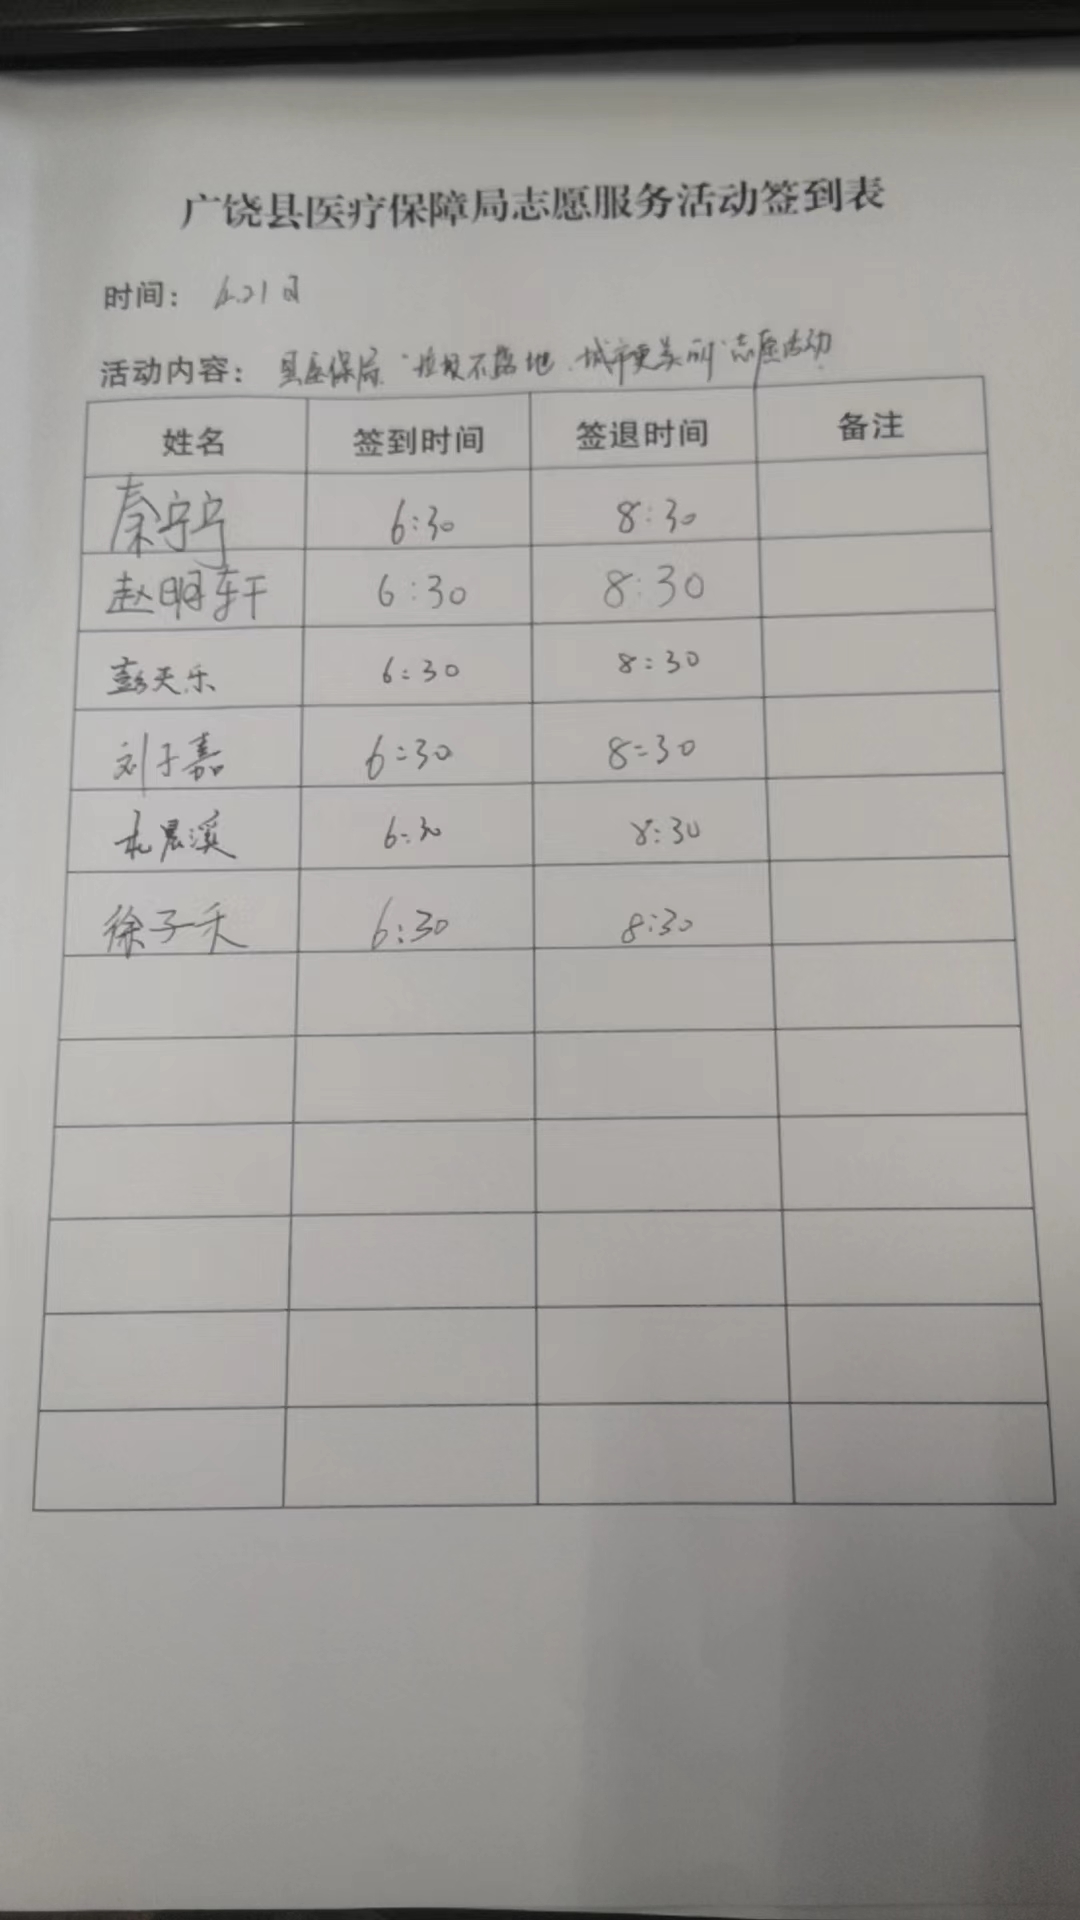 广饶县医疗保障局志愿服务活动签到表
时间： 6.21日
活动内容： 县医保局“垃圾不落地、城市更美丽”志愿活动
姓名 签到时间 签退时间 备注
秦宁宁 6:30 8:30
赵明轩 6:30 8:30
彭天乐 6:30 8:30
刘子嘉 6:30 8:30
晨溪 6:30 8:30
徐子禾 6:30 8:30